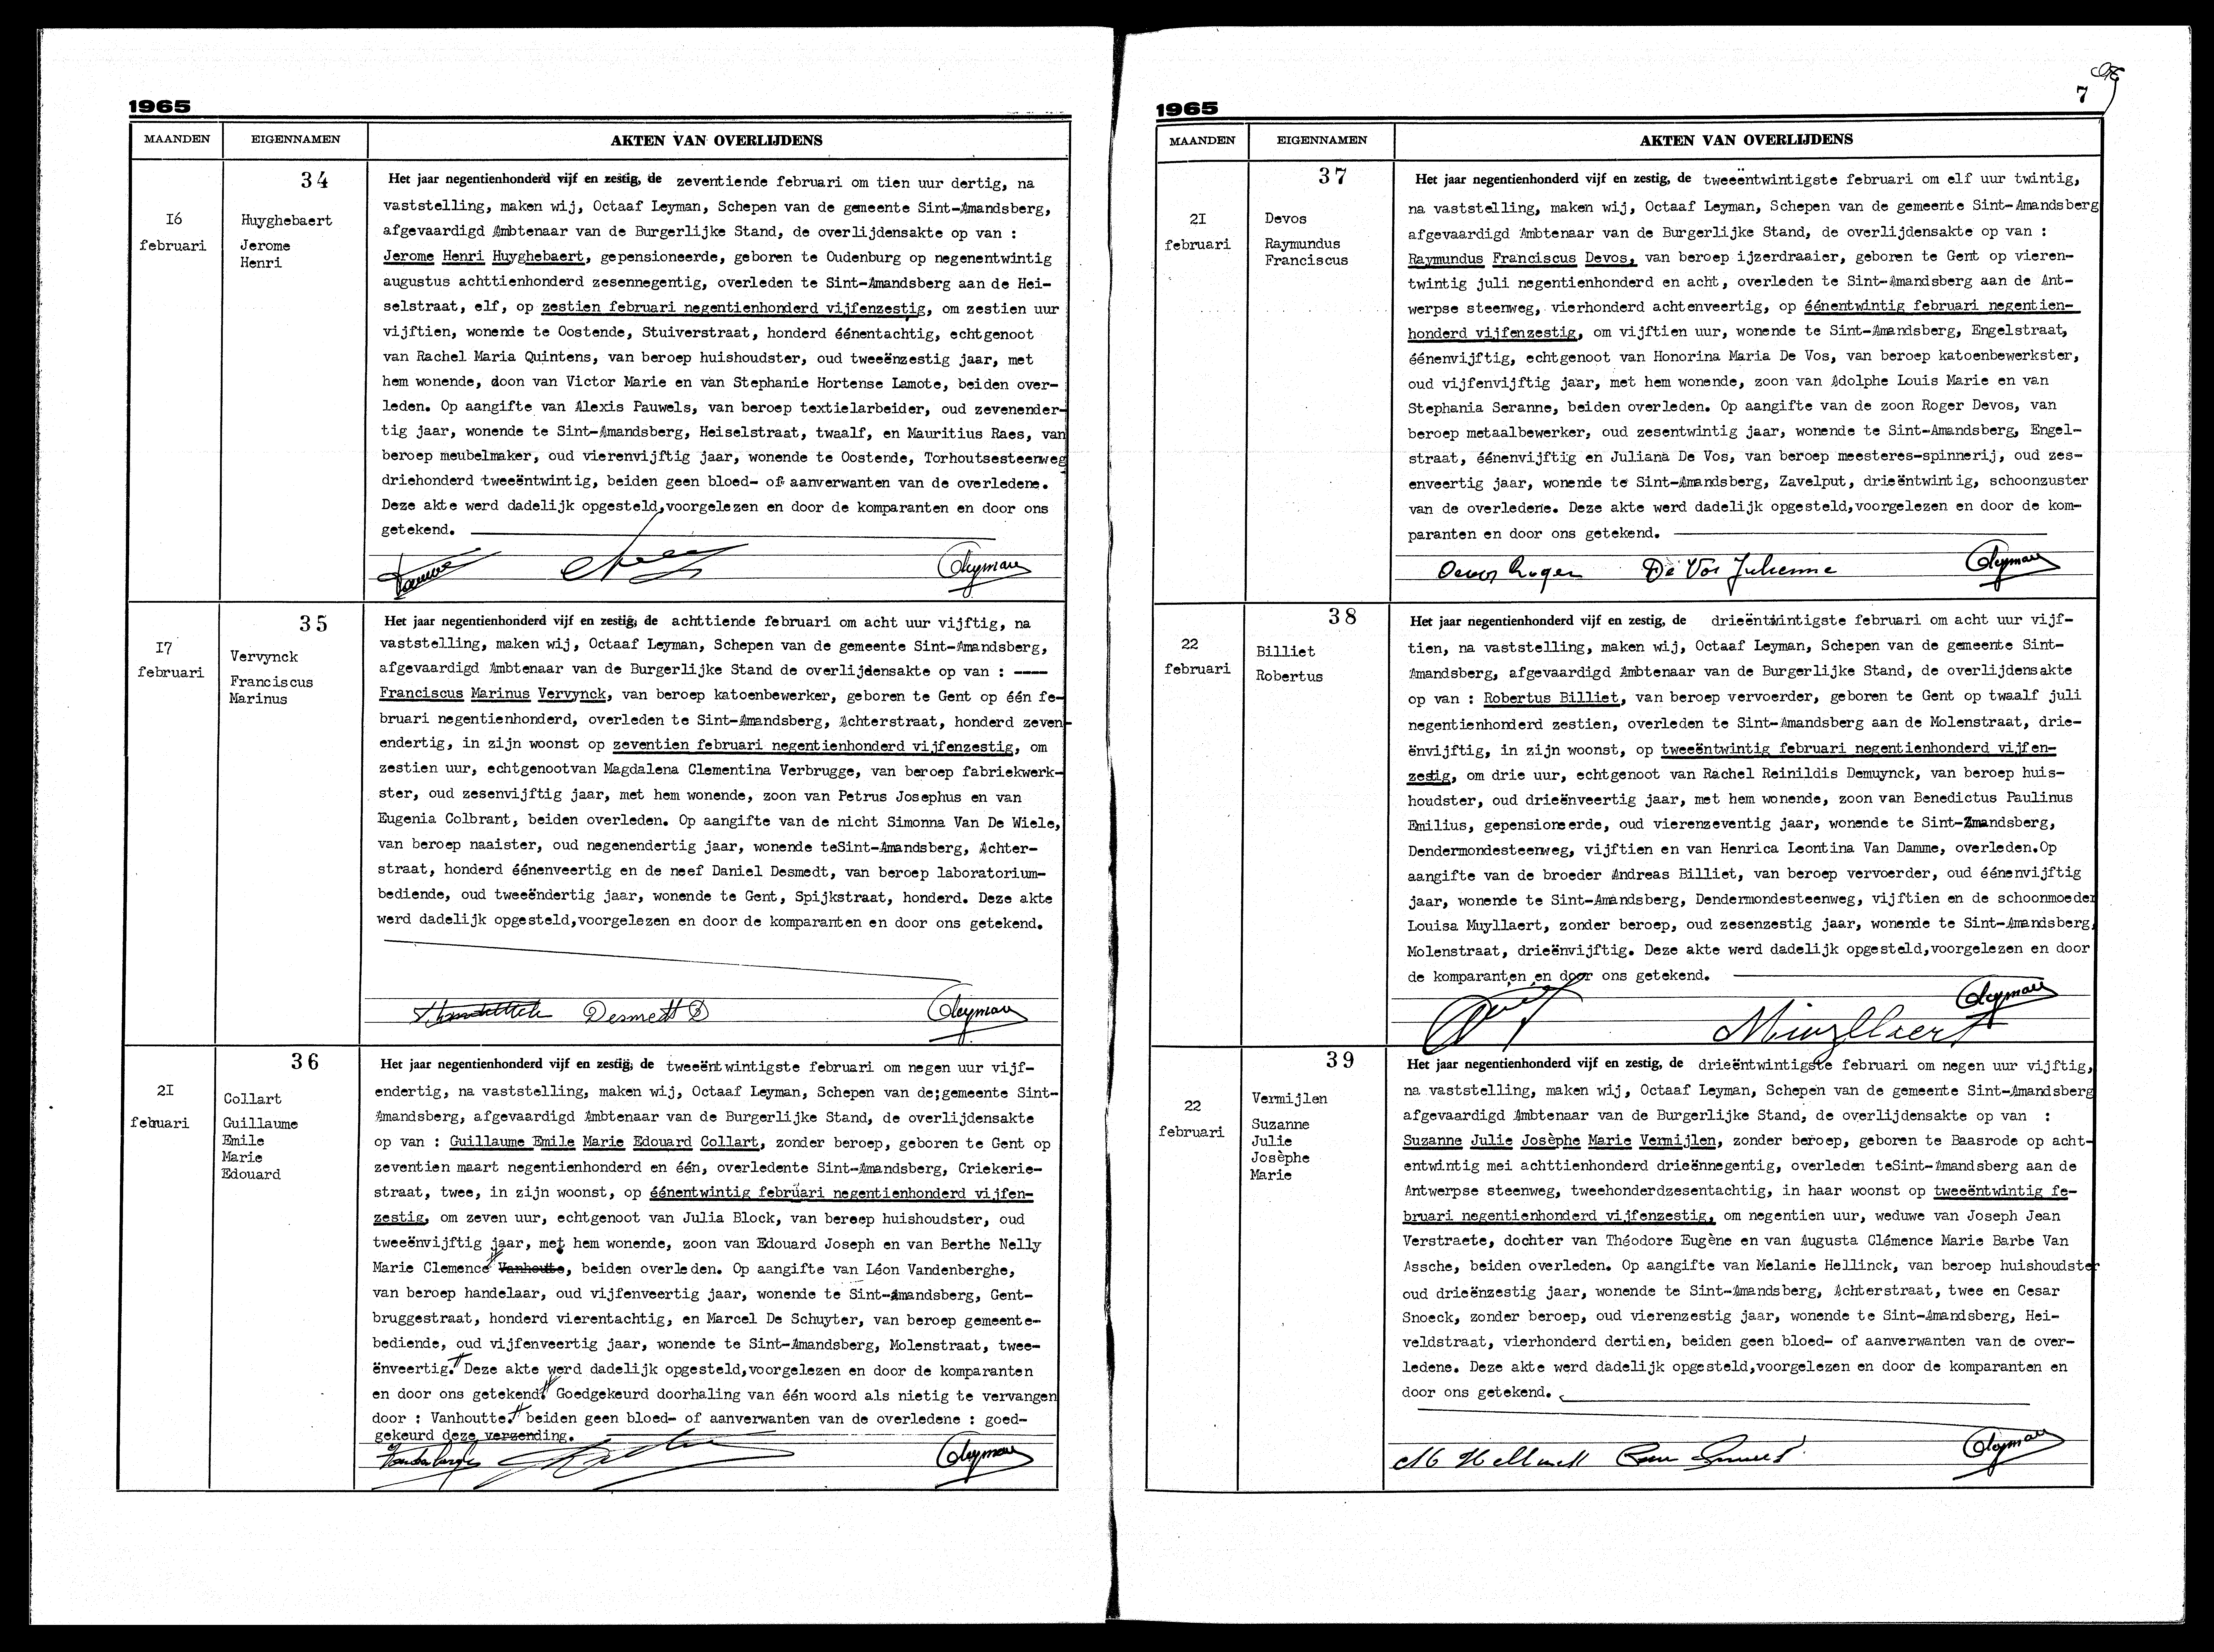 1965
MAANDEN
EIGENNAMEN
AKTEN VAN OVERLIJDENS
34
I6
februari
Huyghebaert
Jerome
Henri
Het jaar negentienhonderd vijf en zestig, de zeventiende februari om tien uur dertig, na
vaststelling, maken wij, Octaaf Leyman, Schepen van de gemeente Sint-Amandsberg,
afgevaardigd Ambtenaar van de Burgerlijke Stand, de overlijdensakte op van :
Jerome Henri Huyghebaert, gepensioneerde, geboren te Oudenburg op negenentwintig
augustus achttienhonderd zesennegentig, overleden te Sint-Amandsberg aan de Hei-
selstraat, elf, op zestien februari negentienhonderd vijfenzestig, om zestien uur
vijftien, wonende te Oostende, Stuiverstraat, honderd éénentachtig, echtgenoot
van Rachel Maria Quintens, van beroep huishoudster, oud tweeënzestig jaar, met
hem wonende, doon van Victor Marie en van Stephanie Hortense Lamote, beiden over-
leden. Op aangifte van Alexis Pauwels, van beroep textielarbeider, oud zevenender-
tig jaar, wonende te Sint-Amandsberg, Heiselstraat, twaalf, en Mauritius Raes, van
beroep meubelmaker, oud vierenvijftig jaar, wonende te Oostende, Torhoutsesteenweg
driehonderd tweeëntwintig, beiden geen bloed- of aanverwanten van de overledene.
Deze akte werd dadelijk opgesteld,voorgelezen en door de komparanten en door ons
getekend.
OLeyman
35
I7
februari
Vervynck
Franciscus
Marinus
Het jaar negentienhonderd vijf en zestig, de achttiende februari om acht uur vijftig, na
vaststelling, maken wij, Octaaf Leyman, Schepen van de gemeente Sint-Amandsberg,
afgevaardigd Ambtenaar van de Burgerlijke Stand de overlijdensakte op van : ----
Franciscus Marinus Vervynck, van beroep katoenbewerker, geboren te Gent op één fe-
bruari negentienhonderd, overleden te Sint-Amandsberg, Achterstraat, honderd zeven-
endertig, in zijn woonst op zeventien februari negentienhonderd vijfenzestig, om
zestien uur, echtgenootvan Magdalena Clementina Verbrugge, van beroep fabriekwerk-
ster, oud zesenvijftig jaar, met hem wonende, zoon van Petrus Josephus en van
Eugenia Colbrant, beiden overleden. Op aangifte van de nicht Simonna Van De Wiele,
van beroep naaister, oud negenendertig jaar, wonende teSint-Amandsberg, Achter-
straat, honderd éénenveertig en de neef Daniel Desmedt, van beroep laboratorium-
bediende, oud tweeëndertig jaar, wonende te Gent, Spijkstraat, honderd. Deze akte
werd dadelijk opgesteld,voorgelezen en door de komparanten en door ons getekend.
Desmedt D OLeyman
36
2I
februari
Collart
Guillaume
Emile
Marie
Edouard
Het jaar negentienhonderd vijf en zestig, de tweeëntwintigste februari om negen uur vijf-
endertig, na vaststelling, maken wij, Octaaf Leyman, Schepen van de;gemeente Sint-
Amandsberg, afgevaardigd Ambtenaar van de Burgerlijke Stand, de overlijdensakte
op van : Guillaume Emile Marie Edouard Collart, zonder beroep, geboren te Gent op
zeventien maart negentienhonderd en één, overledente Sint-Amandsberg, Criekerie-
straat, twee, in zijn woonst, op éénentwintig februari negentienhonderd vijfen-
zestig, om zeven uur, echtgenoot van Julia Block, van beroep huishoudster, oud
tweeënvijftig jaar, met hem wonende, zoon van Edouard Joseph en van Berthe Nelly
Marie Clemence Vanhoutte, beiden overleden. Op aangifte van Léon Vandenberghe,
van beroep handelaar, oud vijfenveertig jaar, wonende te Sint-Amandsberg, Gent-
bruggestraat, honderd vierentachtig, en Marcel De Schuyter, van beroep gemeente-
bediende, oud vijfenveertig jaar, wonende te Sint-Amandsberg, Molenstraat, twee-
ënveertig. Deze akte werd dadelijk opgesteld,voorgelezen en door de komparanten
en door ons getekend. Goedgekeurd doorhaling van één woord als nietig te vervangen
door : Vanhoutte. beiden geen bloed- of aanverwanten van de overledene : goed-
gekeurd deze verzending.
OLeyman
7
1965
MAANDEN
EIGENNAMEN
AKTEN VAN OVERLIJDENS
37
2I
februari
Devos
Raymundus
Franciscus
Het jaar negentienhonderd vijf en zestig, de tweeëntwintigste februari om elf uur twintig,
na vaststelling, maken wij, Octaaf Leyman, Schepen van de gemeente Sint-Amandsberg
afgevaardigd Ambtenaar van de Burgerlijke Stand, de overlijdensakte op van :
Raymundus Franciscus Devos, van beroep ijzerdraaier, geboren te Gent op vieren-
twintig juli negentienhonderd en acht, overleden te Sint-Amandsberg aan de Ant-
werpse steenweg, vierhonderd achtenveertig, op éénentwintig februari negentien-
honderd vijfenzestig, om vijftien uur, wonende te Sint-Amandsberg, Engelstraat,
éénenvijftig, echtgenoot van Honorina Maria De Vos, van beroep katoenbewerkster,
oud vijfenvijftig jaar, met hem wonende, zoon van Adolphe Louis Marie en van
Stephania Seranne, beiden overleden. Op aangifte van de zoon Roger Devos, van
beroep metaalbewerker, oud zesentwintig jaar, wonende te Sint-Amandsberg, Engel-
straat, éénenvijftig en Juliana De Vos, van beroep meesteres-spinnerij, oud zes-
enveertig jaar, wonende te Sint-Amandsberg, Zavelput, drieëntwintig, schoonzuster
van de overledene. Deze akte werd dadelijk opgesteld,voorgelezen en door de kom-
paranten en door ons getekend.
Devos Roger De Vos Julienne OLeyman
38
22
februari
Billiet
Robertus
Het jaar negentienhonderd vijf en zestig, de drieëntwintigste februari om acht uur vijf-
tien, na vaststelling, maken wij, Octaaf Leyman, Schepen van de gemeente Sint-
Amandsberg, afgevaardigd Ambtenaar van de Burgerlijke Stand, de overlijdensakte
op van : Robertus Billiet, van beroep vervoerder, geboren te Gent op twaalf juli
negentienhonderd zestien, overleden te Sint-Amandsberg aan de Molenstraat, drie-
ënvijftig, in zijn woonst, op tweeëntwintig februari negentienhonderd vijfen-
zestig, om drie uur, echtgenoot van Rachel Reinildis Demuynck, van beroep huis-
houdster, oud drieënveertig jaar, met hem wonende, zoon van Benedictus Paulinus
Emilius, gepensioneerde, oud vierenzeventig jaar, wonende te Sint-Amandsberg,
Dendermondesteenweg, vijftien en van Henrica Leontina Van Damme, overleden.Op
aangifte van de broeder Andreas Billiet, van beroep vervoerder, oud éénenvijftig
jaar, wonende te Sint-Amandsberg, Dendermondesteenweg, vijftien en de schoonmoeder
Louisa Muyllaert, zonder beroep, oud zesenzestig jaar, wonende te Sint-Amandsberg,
Molenstraat, drieënvijftig. Deze akte werd dadelijk opgesteld,voorgelezen en door
de komparanten en door ons getekend.
Muyllaert OLeyman
39
22
februari
Vermijlen
Suzanne
Julie
Josèphe
Marie
Het jaar negentienhonderd vijf en zestig, de drieëntwintigste februari om negen uur vijftig,
na vaststelling, maken wij, Octaaf Leyman, Schepen van de gemeente Sint-Amandsberg
afgevaardigd Ambtenaar van de Burgerlijke Stand, de overlijdensakte op van :
Suzanne Julie Josèphe Marie Vermijlen, zonder beroep, geboren te Baasrode op acht-
entwintig mei achttienhonderd drieënnegentig, overleden teSint-Amandsberg aan de
Antwerpse steenweg, tweehonderdzesentachtig, in haar woonst op tweeëntwintig fe-
bruari negentienhonderd vijfenzestig, om negentien uur, weduwe van Joseph Jean
Verstraete, dochter van Théodore Eugène en van Augusta Clémence Marie Barbe Van
Assche, beiden overleden. Op aangifte van Melanie Hellinck, van beroep huishoudster
oud drieënzestig jaar, wonende te Sint-Amandsberg, Achterstraat, twee en Cesar
Snoeck, zonder beroep, oud vierenzestig jaar, wonende te Sint-Amandsberg, Hei-
veldstraat, vierhonderd dertien, beiden geen bloed- of aanverwanten van de over-
ledene. Deze akte werd dadelijk opgesteld,voorgelezen en door de komparanten en
door ons getekend.
OLeyman